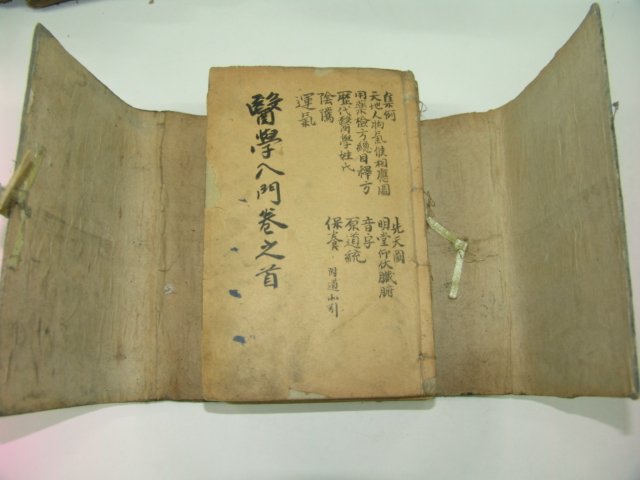 集例 先天圖
天地人物氣候相應圖 明堂仰伏臟腑
用藥檢方總目釋方 音字
歷代醫學姓氏 原道統
陰騭 保養
運氣
醫學入門卷之首